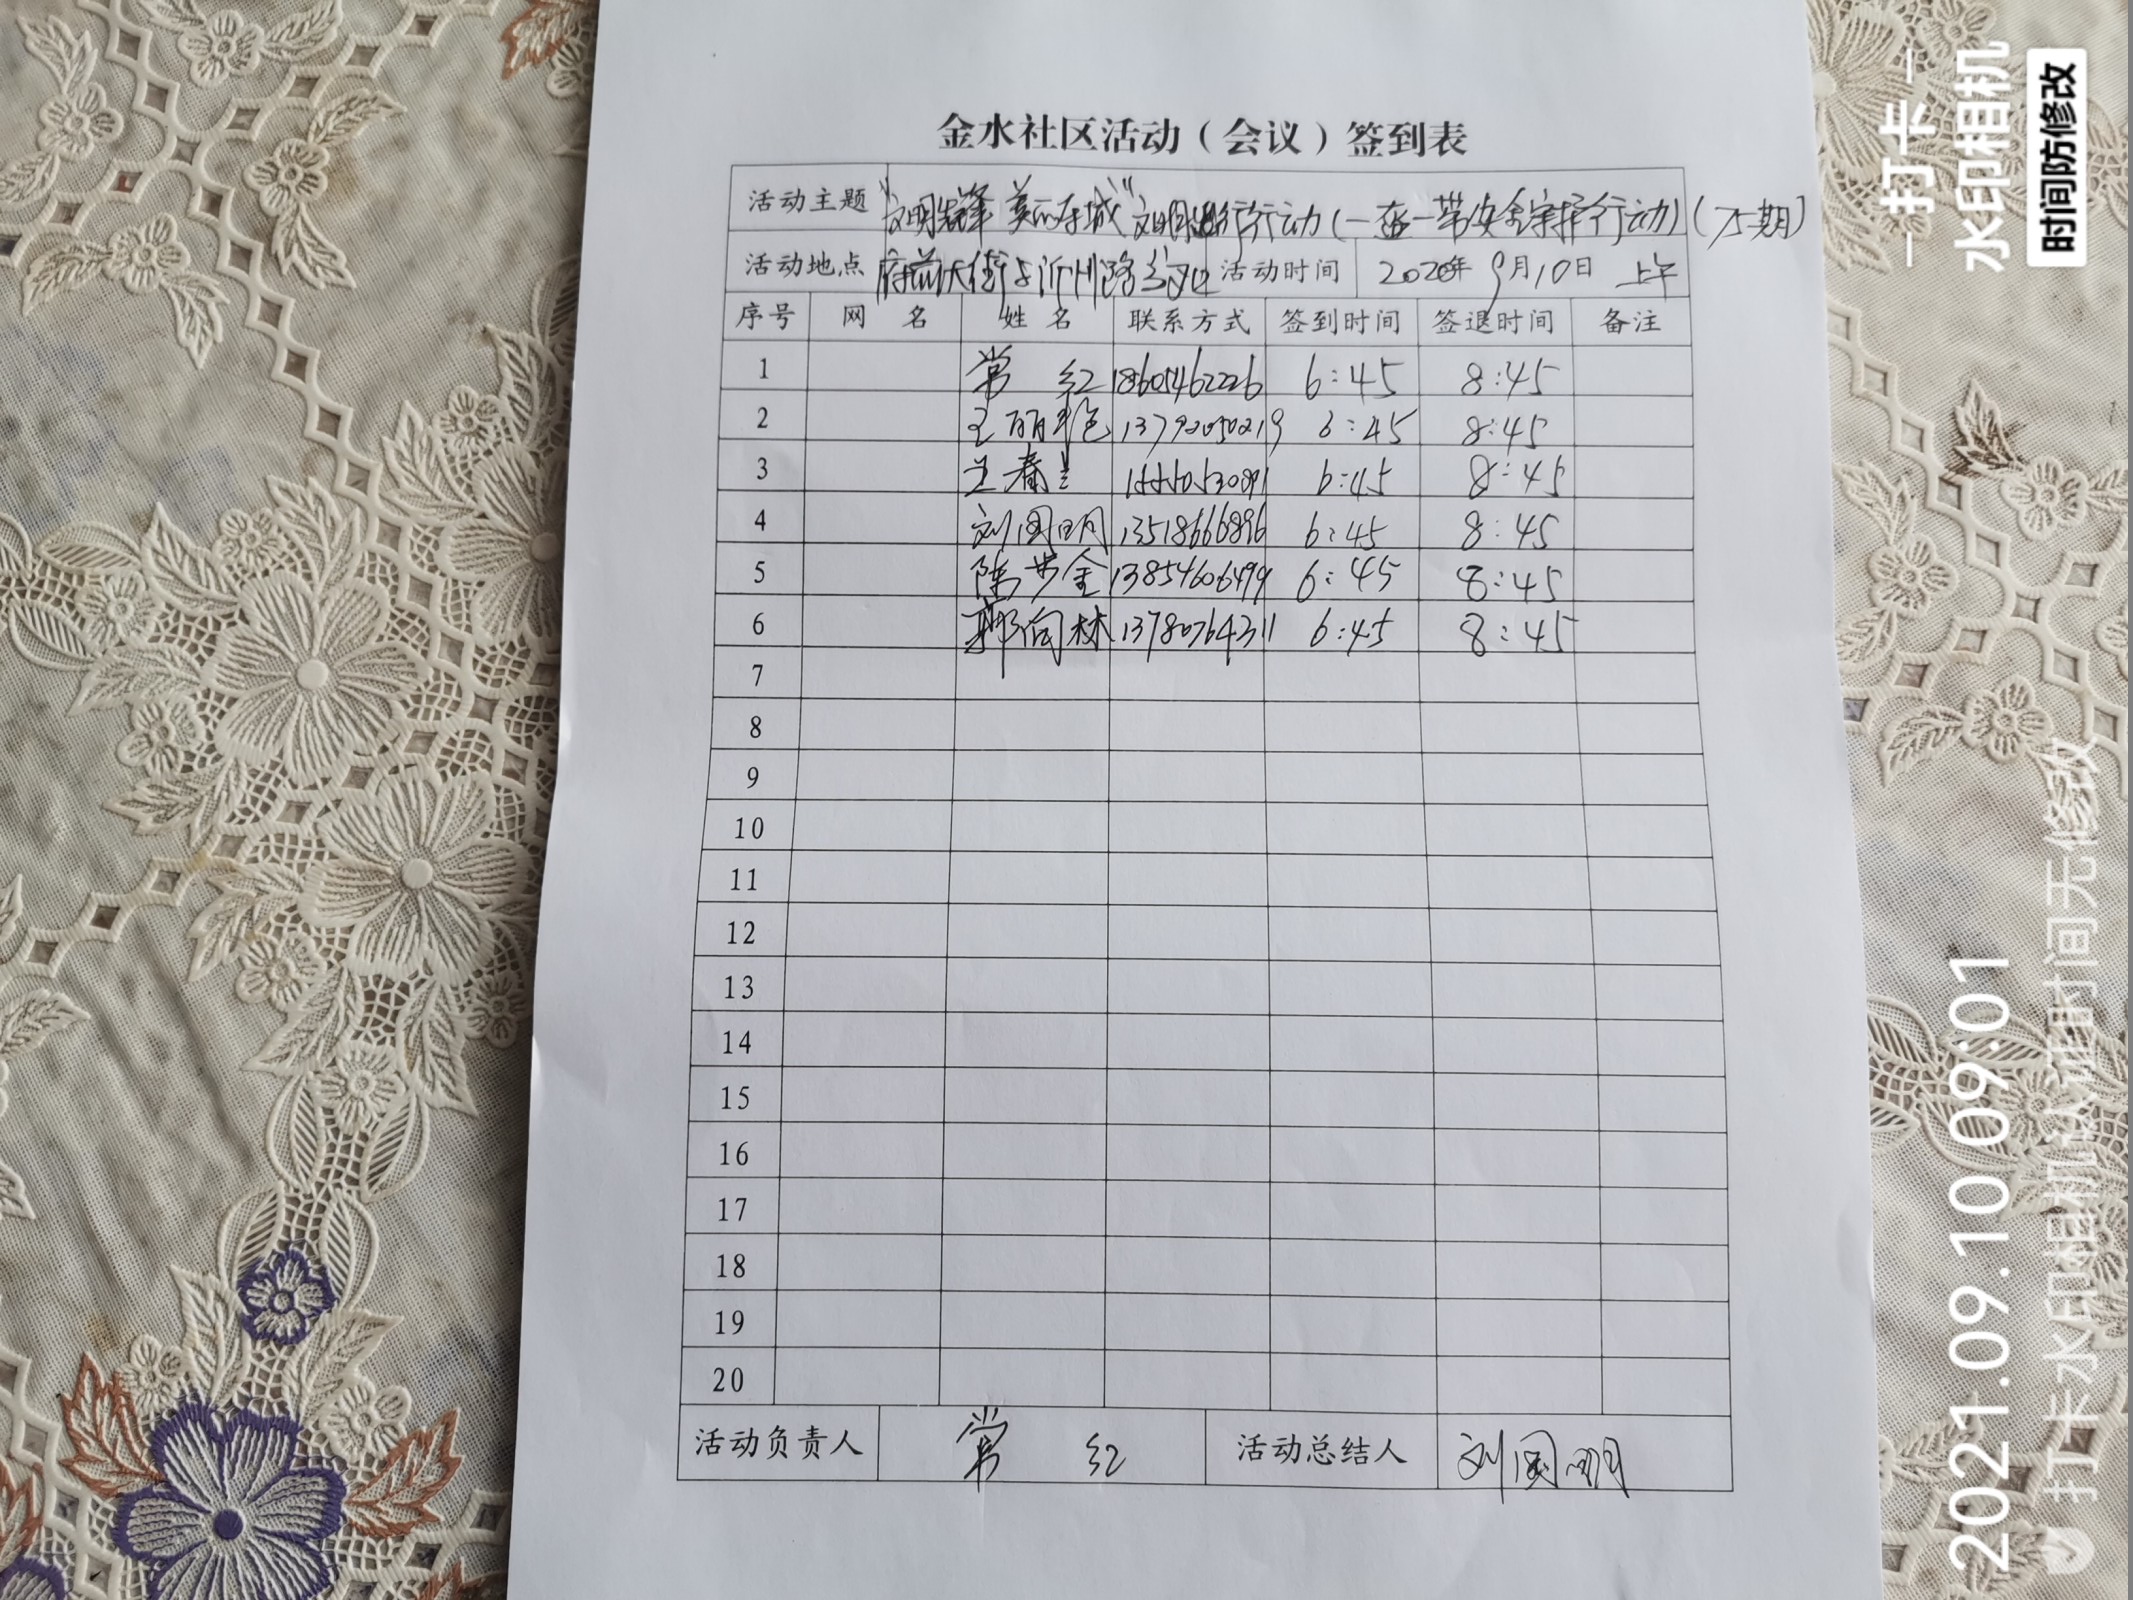 金水社区活动（会议）签到表
活动主题 "文明先锋 美丽东城"文明出行行动(一盔一带安全守护行动)(75期)
活动地点 府前大街与沂州路 活动时间 2020年 9月10日 上午
序号 网 名 姓 名 联系方式 签到时间 签退时间 备注
1 常 红 18605462226 6:45 8:45
2 王丽艳 13792050219 6:45 8:45
3 兰春兰 15550530891 6:45 8:45
4 刘国明 13518666896 6:45 8:45
5 陈步金 13854606499 6:45 8:45
6 郭向林 13780764311 6:45 8:45
7
8
9
10
11
12
13
14
15
16
17
18
19
20
活动负责人 常 红 活动总结人 刘国明
打卡
水印相机
时间防修改
2021.09.10 09:01
打卡水印相机认证时间无修改